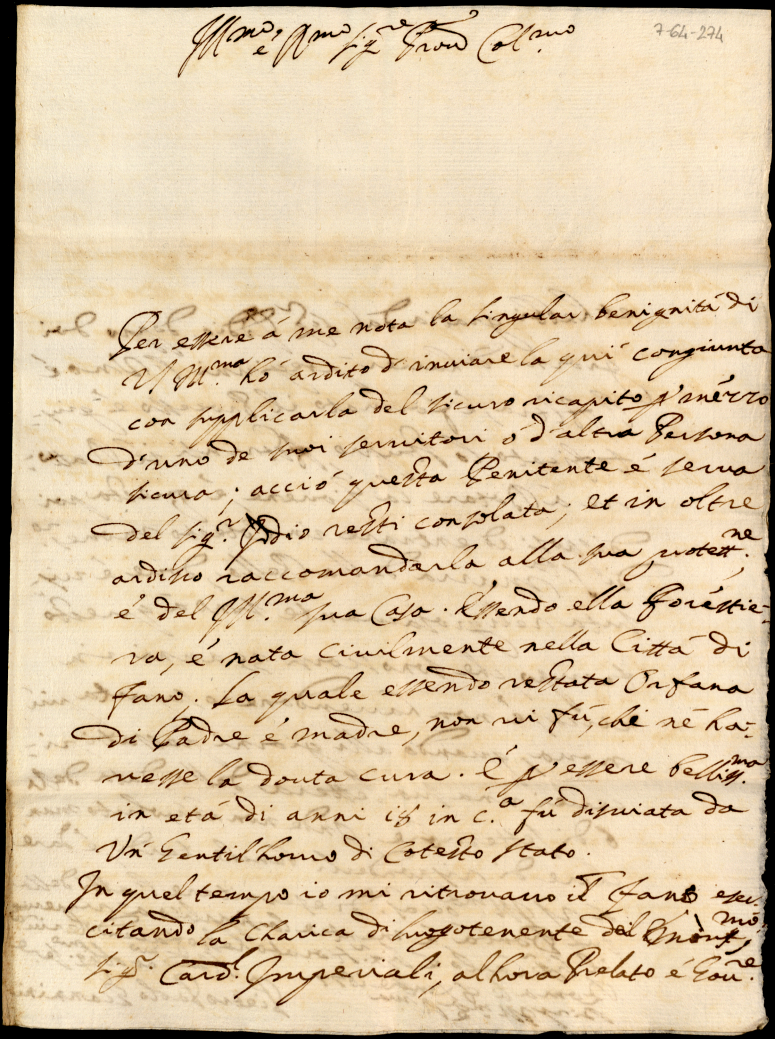 7-64-274
Ill.mo e R.mo sig.re Pron Col.mo
Per essere á me nota la singular benignitá di
V Ill.ma hó ardito d'inviare la qui congiunta
con supplicarla del sicuro ricapito p mézzo
d'uno de suoi servitori ó d'altra Persona
sicura; acció questa Penitente é serva
del sig.r Iddio resti consolata; et in oltre
ardisco raccomandarla alla sua protett.ne;
é del Ill.ma sua Casa. Essendo ella Foréstie=
ra, é nata Civilmente nella Cittá di
Fano; La quale essendo restata Orfana
di Padre é madre, non vi fú, chi né ha=
vesse la dovta cura. É p essere belliss.ma
in etá di anni 18 in c.a fú disviata da
Un Gentil'homo di Cotesto stato.
In quel tempo io mi ritrovavo in Fano eser=
citando la Charica di luogotenente del
sig.r Card.l Imperiali, alhora Prelato é Gov.re